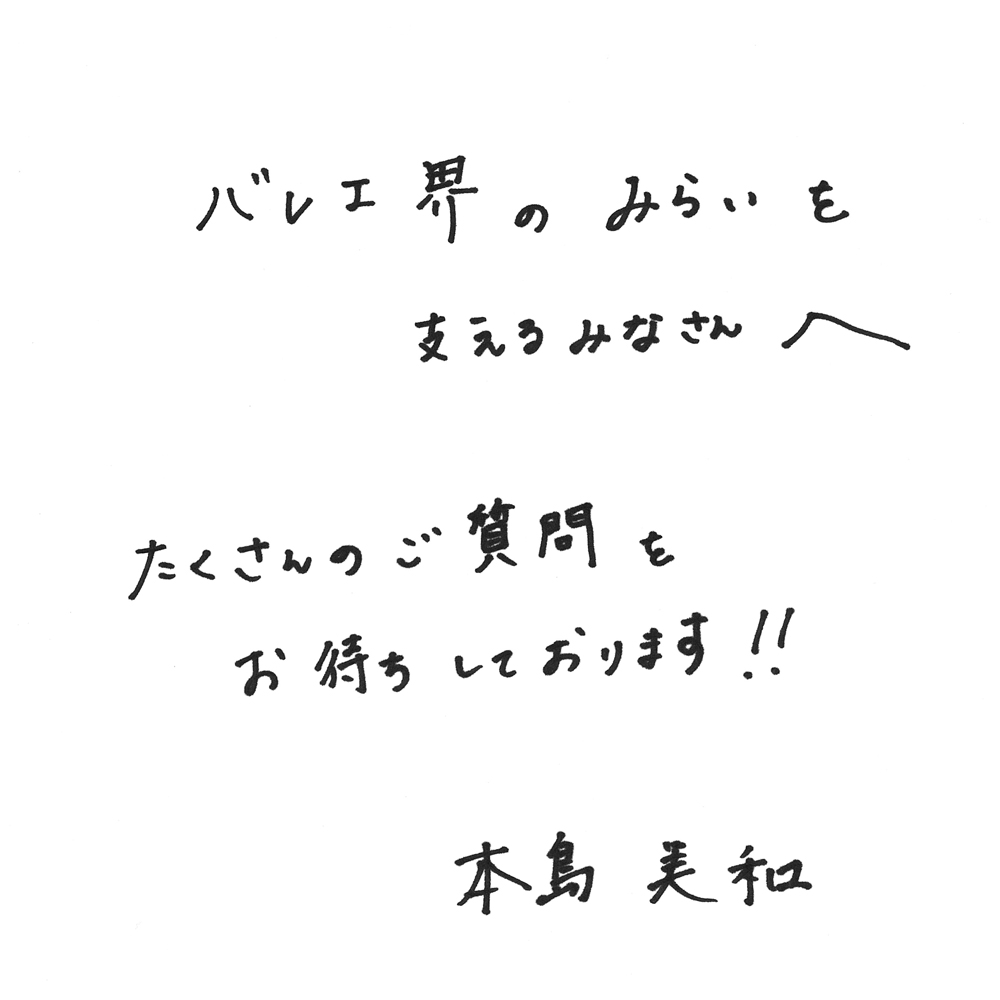 バレエ界のみらいを
支えるみなさんへ
たくさんのご質問を
お待ちしております!!
本島 美和